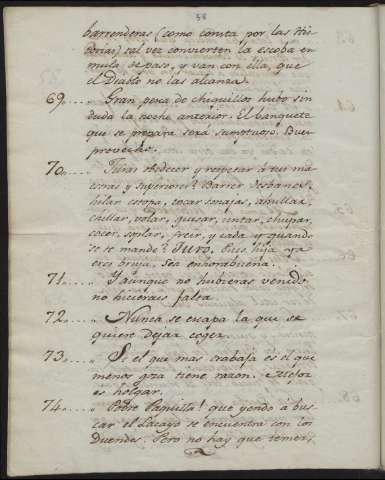 58
barrenderas (como consta por las His-
torias) tal vez convierten la escoba en
mula de paso, y van con ella, que
el Diablo no las alcanza.
69..... Gran pesca de chiquillos hubo sin
duda la noche anterior. El banquete
que se prepara será sumptuoso. Buen
provecho.
70..... " Juras obedecer y respetar á tus ma-
estras y superiores? Barrer desbanes,
hilar estopa, tocar sonajas, ahullar,
chillar, volar, guisar, untar, chupar,
cocer, soplar, freir, y cada y quando
se te mande? JURO. Pues hija ya
eres bruja. Sea enhorabuena.
71..... " Y aunque no hubieras venido
no hicierais falta.
72..... " Nunca se escapa la que se
quiere dejar coger.
73..... " Si el que mas trabaja es el que
menos goza tiene razon. Mejor
es holgar.
74..... " Pobre Paquilla! que yendo á bus-
car el Lacayo se encuentra con los
Duendes. Pero no hay que temer;